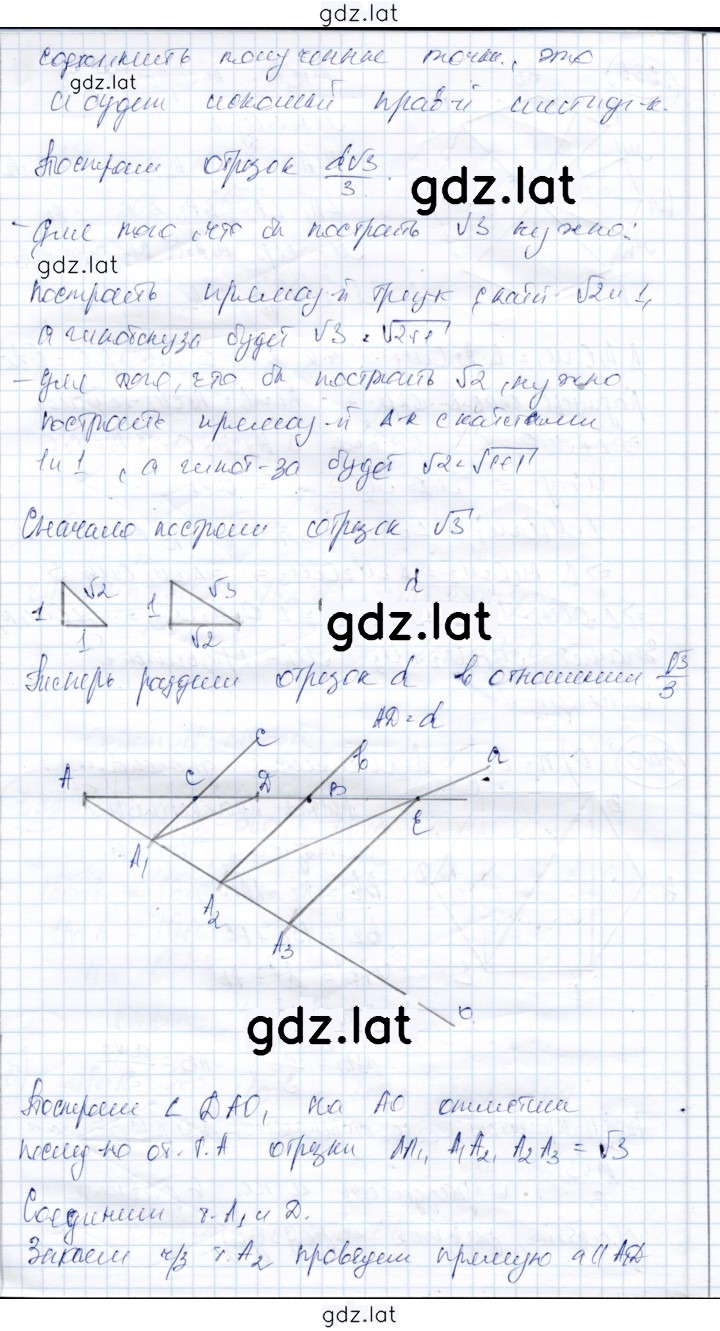 gdz.lat
соединить полученные точки, это
gdz.lat
и будет искомый прав-й шестиуг-к.
Построим отрезок d√3/3.
gdz.lat
- Для того, что бы построить √3 нужно:
gdz.lat
построить прямоуг-й треуг-к с кат. √2 и 1,
а гипотенуза будет √3 = √2+1
- Для того, что бы построить √2, нужно
построить прямоуг-й Δ-к с катетами
1 и 1, а гипот-за будет √2 = √1+1
Сначала построим отрезок √3
1 √2 1 √3 d
1 √2
gdz.lat
Теперь разделим отрезок d в отношении √3/3
AD = d
c b a
A C D B E
A1
A2
A3
O
gdz.lat
Построим ∠ DAO, на AO отметим
послед-но от т. A отрезки AA1, A1A2, A2A3 = √3
Соединим т. A1 и D.
Затем ч/з т. A2 проведем прямую a ||
gdz.lat